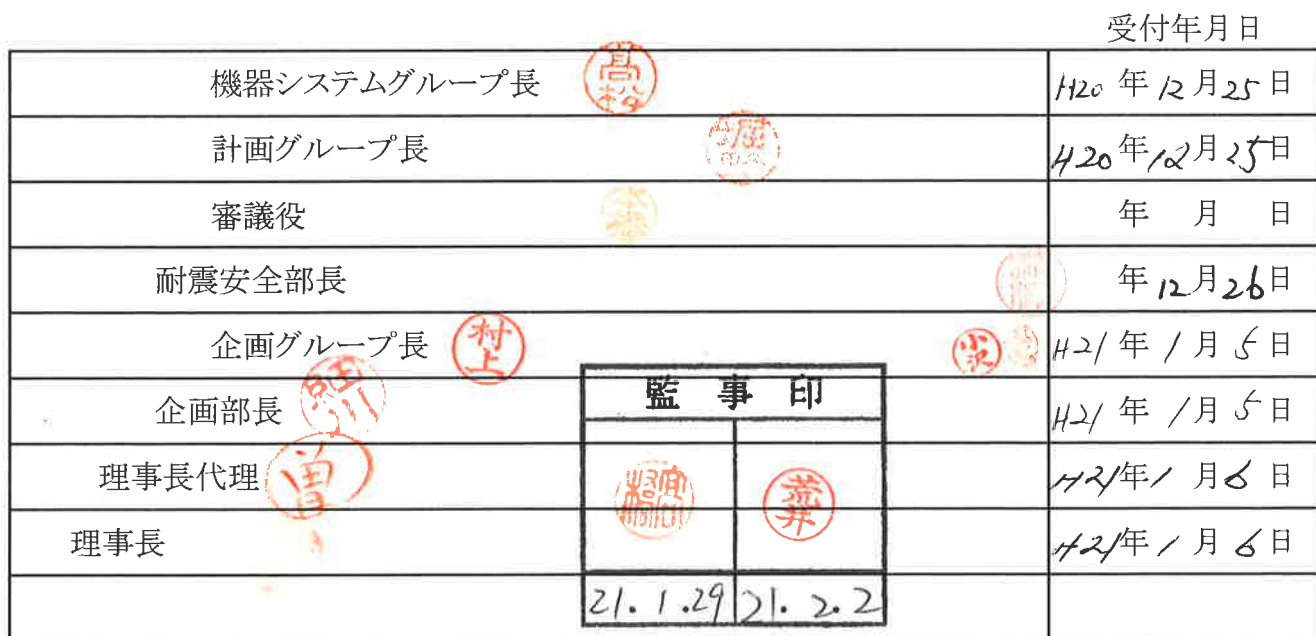 受付年月日
機器システムグループ長 髙松 H20年12月25日
計画グループ長 H20年12月25日
審議役 年 月 日
耐震安全部長 年12月26日
企画グループ長 村上 小沢 H21年1月5日
企画部長 H21年1月5日
理事長代理 曽 H21年1月6日
理事長 H21年1月6日
監事印
荒井
21.1.29 21.2.2